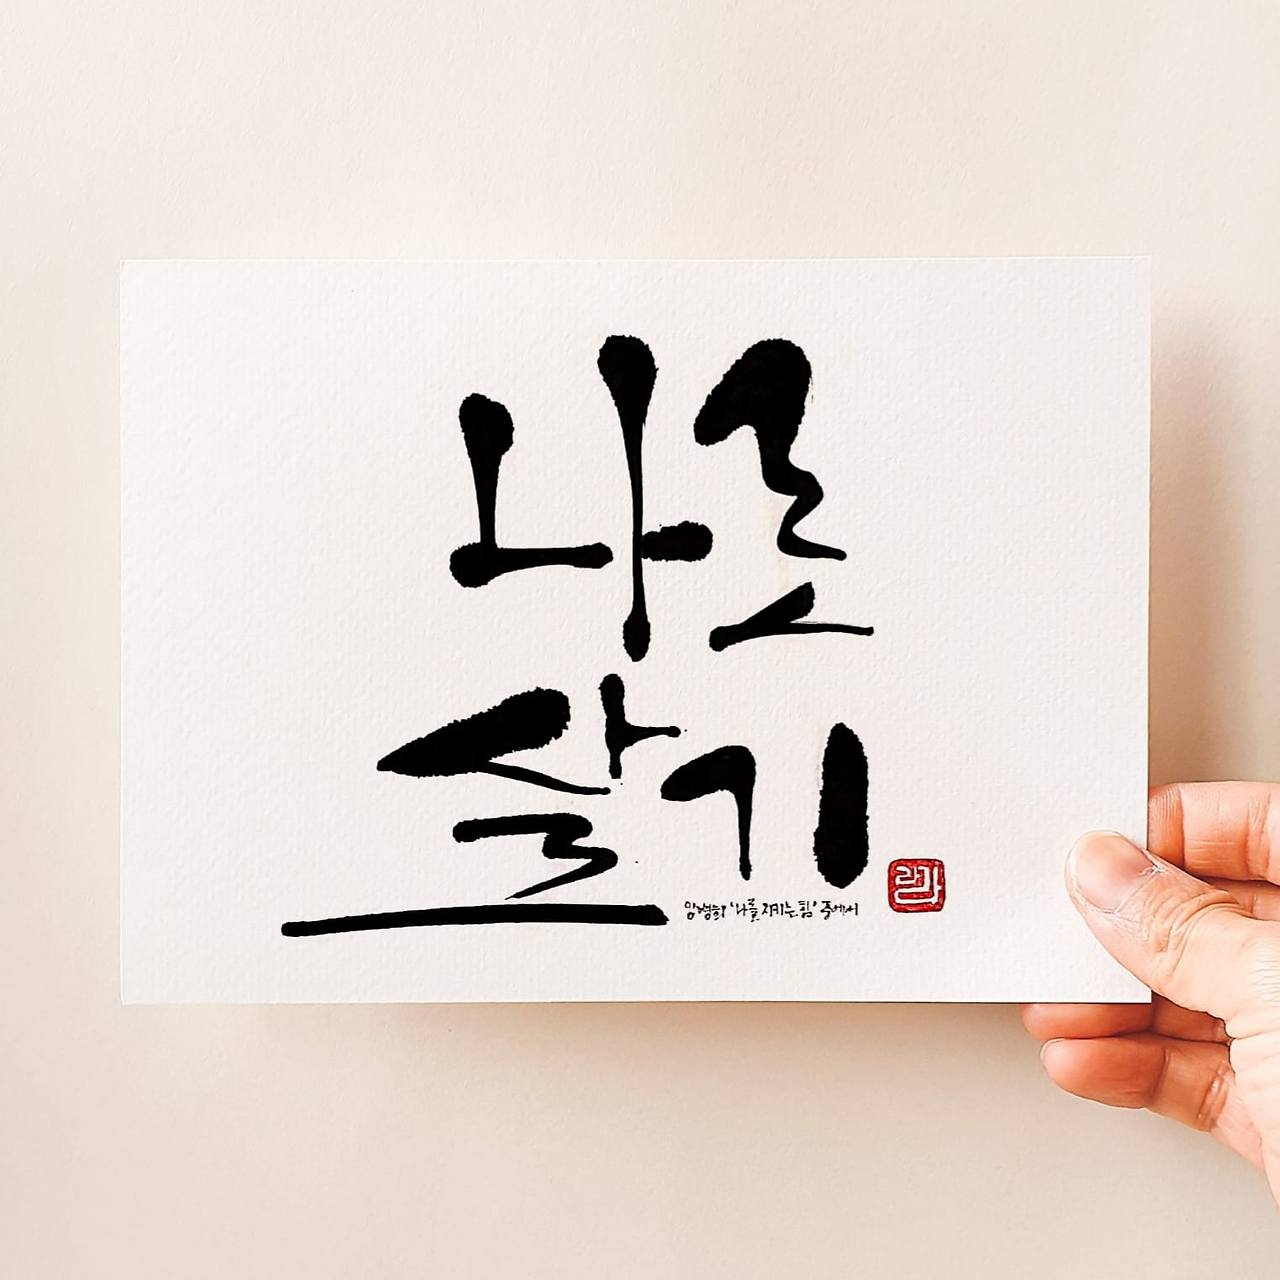 나로
살기
임병희 '나를 지키는 힘' 중에서
라가